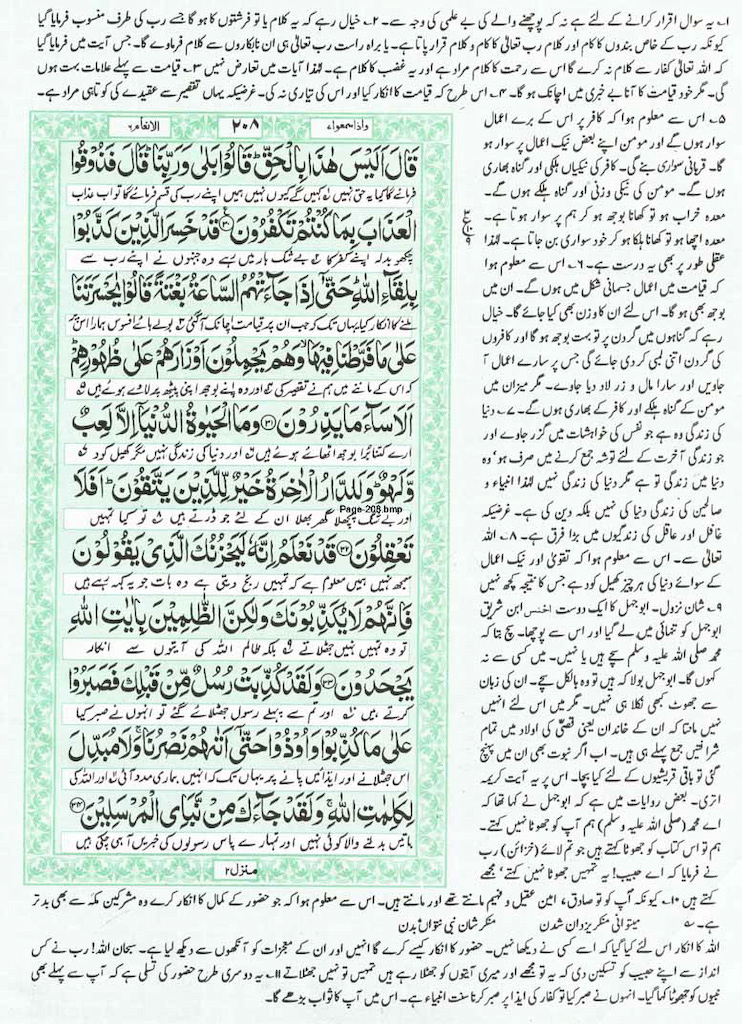 ۱۔ یہ سوال اقرار کرانے کے لئے ہے نہ کہ پوچھنے والے کی بے علمی کی وجہ سے۔ ۲۔ خیال رہے کہ یہ کلام یا تو فرشتوں کا ہو گا جسے رب کی طرف منسوب فرمایا گیا
کیونکہ رب کے خاص بندوں کا کام اور کلام رب تعالیٰ کا کام و کلام قرار پاتا ہے۔ یا براہ راست رب تعالیٰ ہی ان نابکاروں سے کلام فرماوے گا۔ جس آیت میں فرمایا گیا
کہ اللہ تعالیٰ کفار سے کلام نہ کرے گا اس سے رحمت کا کلام مراد ہے اور یہ غضب کا کلام ہے۔ لہٰذا آیات میں تعارض نہیں ۳۔ قیامت سے پہلے علامات بہت ہوں
گی۔ مگر خود قیامت کا آنا بے خبری میں اچانک ہو گا۔ ۴۔ اس طرح کہ قیامت کا انکار کیا اور اس کی تیاری نہ کی۔ غرضیکہ یہاں تقصیر سے عقیدے کی کوتاہی مراد ہے۔
واذا سمعوا۷ ۲۰۸ الانعام۶
قَالَ اَلَیْسَ هٰذَا بِالْحَقِّ ؕ قَالُوْا بَلٰی وَ رَبِّنَا ؕ قَالَ فَذُوْقُوا
فرمائے گا کیا یہ حق نہیں کہیں گے کیوں نہیں ہمیں اپنے رب کی قسم فرمائے گا تو اب عذاب
الْعَذَابَ بِمَا كُنْتُمْ تَكْفُرُوْنَ ۝۳۰ قَدْ خَسِرَ الَّذِیْنَ كَذَّبُوْا
چکھو بدلہ اپنے کفر کا بے شک ہار میں رہے وہ جنہوں نے اپنے رب سے
بِلِقَآءِ اللّٰهِ ؕ حَتّٰۤی اِذَا جَآءَتْهُمُ السَّاعَةُ بَغْتَةً قَالُوْا یٰحَسْرَتَنَا
ملنے کا انکار کیا یہاں تک کہ جب ان پر قیامت اچانک آ گئی بولے ہائے افسوس ہمارا اس پر
عَلٰی مَا فَرَّطْنَا فِیْهَا ۙ وَ هُمْ یَحْمِلُوْنَ اَوْزَارَهُمْ عَلٰی ظُهُوْرِهِمْ ؕ
کہ اس کے ماننے میں ہم نے تقصیر کی اور وہ اپنے بوجھ اپنی پیٹھ پر لادے ہوئے ہیں
اَلَا سَآءَ مَا یَزِرُوْنَ ۝۳۱ وَ مَا الْحَیٰوةُ الدُّنْیَاۤ اِلَّا لَعِبٌ
ارے کتنا برا بوجھ اٹھائے ہوئے ہیں اور دنیا کی زندگی نہیں مگر کھیل کود
وَّ لَهْوٌ ؕ وَ لَلدَّارُ الْاٰخِرَةُ خَیْرٌ لِّلَّذِیْنَ یَتَّقُوْنَ ؕ اَفَلَا
Page-208.bmp
اور بے شک پچھلا گھر بھلا ان کے لئے جو ڈرتے ہیں تو کیا تمہیں
تَعْقِلُوْنَ ۝۳۲ قَدْ نَعْلَمُ اِنَّهٗ لَیَحْزُنُكَ الَّذِیْ یَقُوْلُوْنَ
سمجھ نہیں ہمیں معلوم ہے کہ تمہیں رنج دیتی ہے وہ بات جو یہ کہہ رہے ہیں
فَاِنَّهُمْ لَا یُكَذِّبُوْنَكَ وَ لٰكِنَّ الظّٰلِمِیْنَ بِاٰیٰتِ اللّٰهِ
تو وہ تمہیں نہیں جھٹلاتے بلکہ ظالم اللہ کی آیتوں سے انکار
یَجْحَدُوْنَ ۝۳۳ وَ لَقَدْ كُذِّبَتْ رُسُلٌ مِّنْ قَبْلِكَ فَصَبَرُوْا
کرتے ہیں اور تم سے پہلے رسول جھٹلائے گئے تو انہوں نے صبر کیا
عَلٰی مَا كُذِّبُوْا وَ اُوْذُوْا حَتّٰۤی اَتٰىهُمْ نَصْرُنَا ۚ وَ لَا مُبَدِّلَ
اس جھٹلانے اور ایذائیں پانے پر یہاں تک کہ انہیں ہماری مدد آئی اور اللہ کی
لِكَلِمٰتِ اللّٰهِ ۚ وَ لَقَدْ جَآءَكَ مِنْ نَّبَاِی الْمُرْسَلِیْنَ ۝۳۴
باتیں بدلنے والا کوئی نہیں اور تمہارے پاس رسولوں کی خبریں آ ہی چکی ہیں
منزل۲
۵۔ اس سے معلوم ہوا کہ کافر پر اس کے برے اعمال
سوار ہوں گے اور مومن اپنے بعض نیک اعمال پر سوار ہو
گا۔ قربانی سواری بنے گی۔ کافر کی نیکیاں ہلکی اور گناہ بھاری
ہوں گے۔ مومن کی نیکی وزنی اور گناہ ہلکے ہوں گے۔
معدہ خراب ہو تو کھانا بوجھ ہو کر ہم پر سوار ہوتا ہے۔
معدہ اچھا ہو تو کھانا ہلکا ہو کر خود سواری بن جاتا ہے۔ لہٰذا
عقلی طور پر بھی یہ درست ہے۔ ۶۔ اس سے معلوم ہوا
کہ قیامت میں اعمال جسمانی شکل میں ہوں گے۔ ان میں
بوجھ بھی ہو گا۔ اس لئے ان کا وزن بھی کیا جائے گا۔ خیال
رہے کہ گناہوں میں گردن پر تو بہت بوجھ ہو گا اور کافروں
کی گردن اتنی لمبی کر دی جائے گی جس پر سارے اعمال آ
جاویں اور سارا مال و زر لاد دیا جاوے۔ مگر میزان میں
مومن کے گناہ ہلکے اور کافر کے بھاری ہوں گے۔ ۷۔ دنیا
کی زندگی وہ ہے جو نفس کی خواہشات میں گزر جاوے اور
جو زندگی آخرت کے لئے توشہ جمع کرنے میں صرف ہو، وہ
دنیا میں زندگی تو ہے مگر دنیا کی زندگی نہیں لہٰذا انبیاء و
صالحین کی زندگی دنیا کی نہیں بلکہ دین کی ہے۔ غرضیکہ
غافل اور عاقل کی زندگیوں میں بڑا فرق ہے۔ ۸۔ اللہ
تعالیٰ سے۔ اس سے معلوم ہوا کہ تقویٰ اور نیک اعمال
کے سوائے دنیا کی ہر چیز کھیل کود ہے جس کا نتیجہ کچھ نہیں
۹۔ شان نزول۔ ابوجہل کا ایک دوست اخنس ابن شریق
ابوجہل کو تنہائی میں لے گیا اور اس سے پوچھا۔ سچ بتا کہ
محمد صلی اللہ علیہ وسلم سچے ہیں یا نہیں۔ میں کسی سے نہ
کہوں گا۔ ابوجہل بولا کہ ہیں تو وہ بالکل سچے۔ ان کی زبان
سے جھوٹ کبھی نکلا ہی نہیں۔ مگر میں اس لئے انہیں
نہیں مانتا کہ ان کے خاندان یعنی قصیٰ کی اولاد میں تمام
شرافتیں جمع پہلے ہی ہیں۔ اب اگر نبوت بھی ان میں پہنچ
گئی تو باقی قریشیوں کے لئے کیا بچا۔ اس پر یہ آیت کریمہ
اتری۔ بعض روایات میں ہے کہ ابوجہل نے کہا تھا کہ
اے محمد (صلی اللہ علیہ وسلم) ہم آپ کو جھوٹا نہیں کہتے۔
ہم تو اس کتاب کو جھوٹا کہتے ہیں جو تم لائے (خزائن) رب
نے فرمایا کہ اے حبیب! یہ تمہیں جھوٹا نہیں کہتے، مجھے
کہتے ہیں ۱۰۔ کیونکہ آپ کو تو صادق، امین عقیل و فہیم مانتے تھے اور مانتے ہیں۔ اس سے معلوم ہوا کہ جو حضور کے کمال کا انکار کرے وہ مشرکین مکہ سے بھی بدتر
ہے۔ میتوانی منکر یزداں شدن منکر شان نبی نتواں بدن
اللہ کا انکار اس لئے کیا گیا کہ اسے کسی نے دیکھا نہیں۔ حضور کا انکار کیسے کرے گا انہیں اور ان کے معجزات کو آنکھوں سے دیکھ لیا ہے۔ سبحان اللہ! رب نے کس
انداز سے اپنے حبیب کو تسکین دی کہ یہ تو مجھے اور میری آیتوں کو جھٹلا رہے ہیں تمہیں تو نہیں جھٹلاتے ۱۱۔ یہ دوسری طرح حضور کی تسلی ہے کہ آپ سے پہلے بھی
نبیوں کو جھوٹا کہا گیا۔ انہوں نے صبر کیا تو کفار کی ایذا پر صبر کرنا سنت انبیاء ہے۔ اس میں آپ کا ثواب بڑھے گا۔